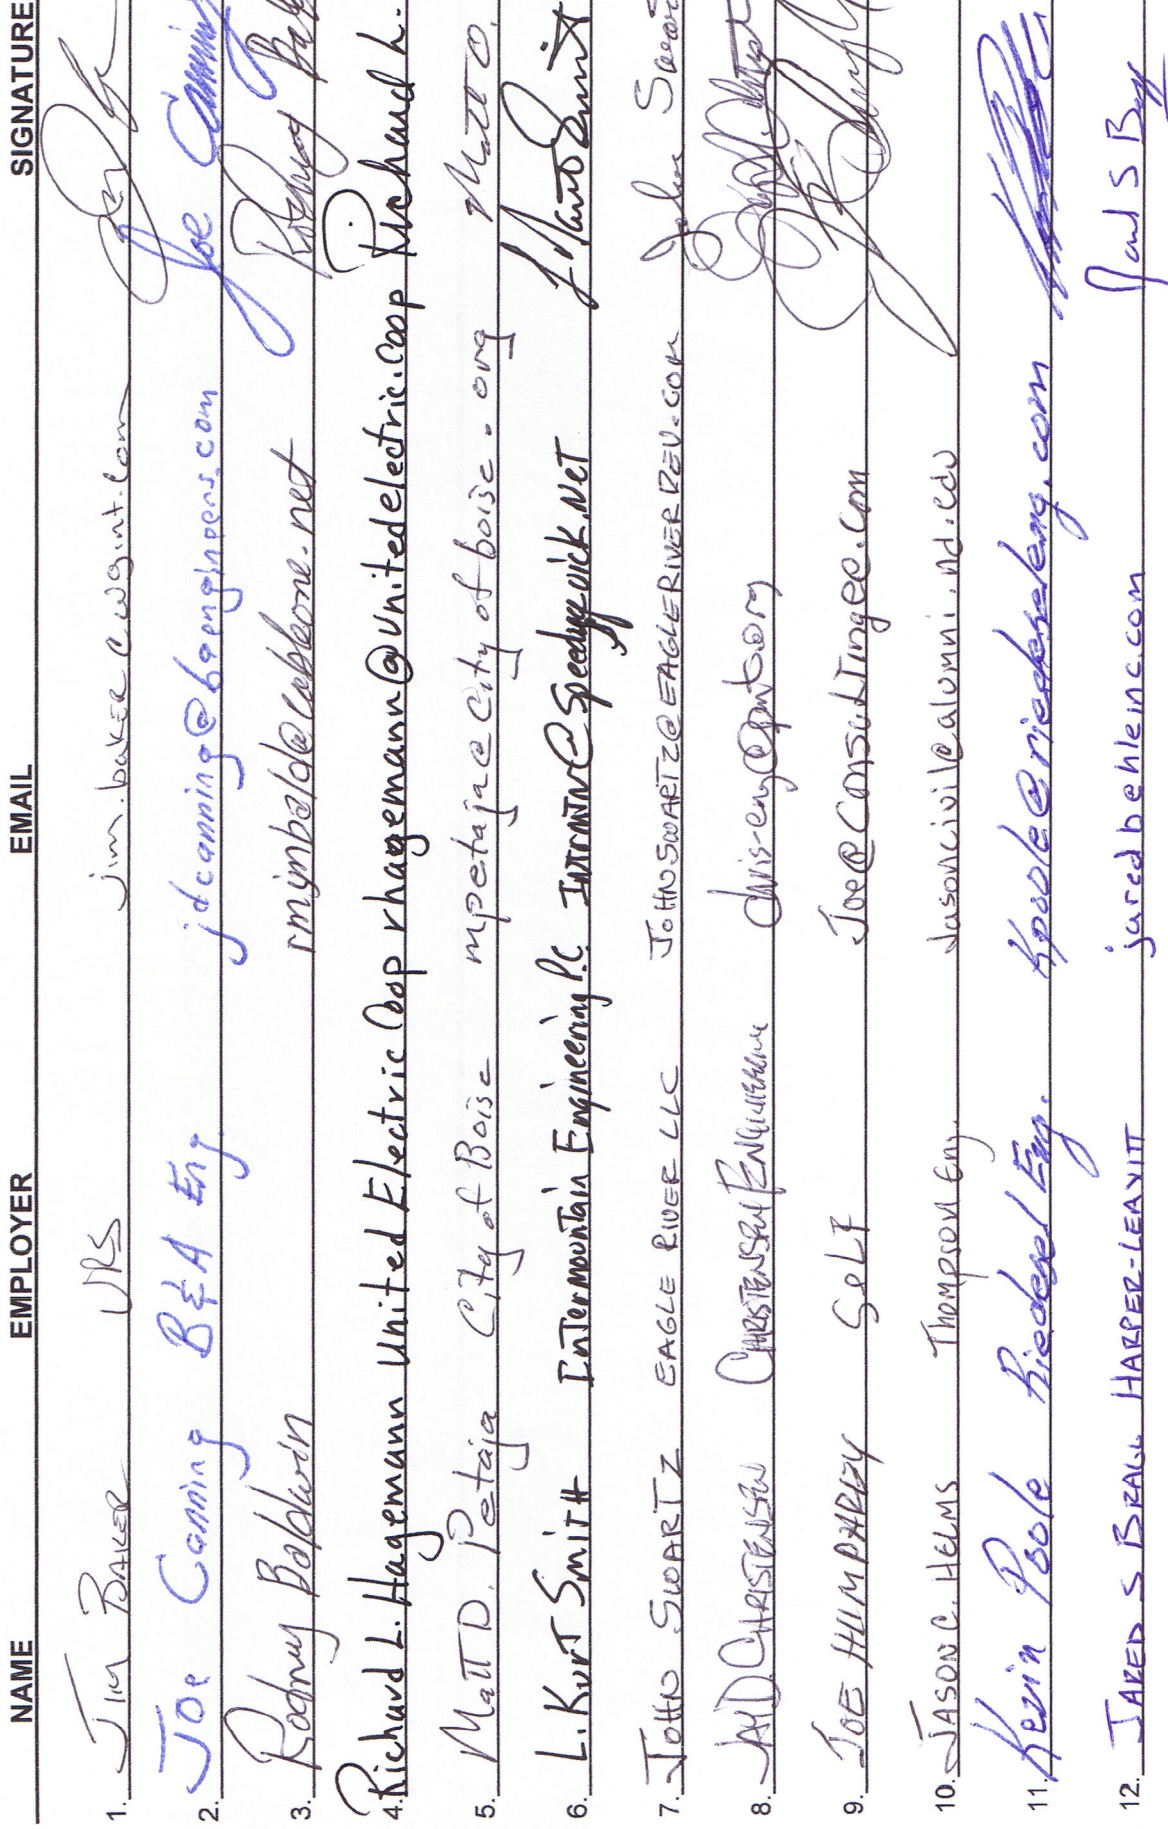 NAME EMPLOYER EMAIL SIGNATURE
1. Jim Baker URS jim.baker@wgint.com
2. Joe Canning B&A Eng jdcanning@baengineers.com Joe Canning
3. Rodney Baldwin rmjmbald@cableone.net Rodney
4. Richard L. Hagemann United Electric Coop rhagemann@unitedelectric.coop Richard L.
5. Matt D. Petaja City of Boise mpetaja@cityofboise.org Matt D.
6. L. Kurt Smith Intermountain Engineering P.C. INTRMTN@Speedyquick.NET
7. JOHN SWARTZ EAGLE RIVER LLC JOHNSWARTZ@EAGLERIVERDEV.COM John
8. JAY D CHRISTENSEN CHRISTENSEN ENGINEERING
9. JOE HUMPHREY SELF Joe@consultingee.com
10. JASON C. HELMS THOMPSON Eng. Jasoncivil@alumni.nd.edu
11. Kevin Poole Riedesel Eng. Kpoole@riedeseleng.com
12. JARED S BRAGG HARPER-LEAVITT jared@ehleinc.com